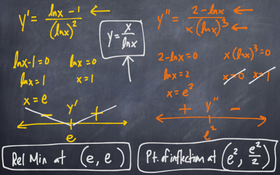 y' = (lnx - 1)/(lnx)² ←
y'' = (2 - lnx)/(x(lnx)³) ←
y = x/lnx
lnx - 1 = 0   lnx = 0
lnx = 1   x = 1
x = e
2 - lnx = 0   x(lnx)³ = 0
lnx = 2   x = 0   x = 1
x = e²
y'
− +
e
+ y'' −
e²
Rel Min at (e, e)
Pt. of inflection at (e², e²/2)